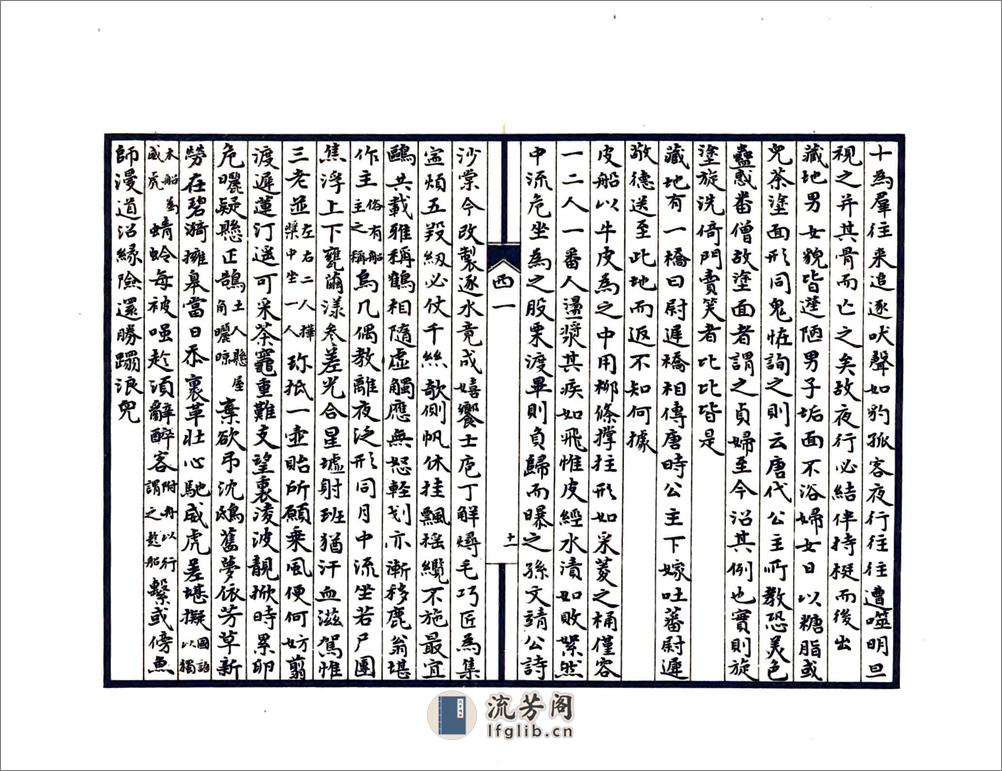 十為羣往來追逐吠聲如豹孤客夜行往往遭噬明旦
視之并其骨而亡之矣故夜行必結伴持梃而後出
藏地男女貌皆陋男子垢面不浴婦女日以糖脂或
兒茶塗面形同鬼怪詢之則云唐代公主所教恐美色
蠱惑番僧故塗面者謂之貞婦至今沿其例也實則旋
塗旋洗倚門賣笑者比比皆是
藏地有一橋曰尉遲橋相傳唐時公主下嫁吐蕃尉遲
敬德送至此地而返不知何據
皮船以牛皮為之中用柳條撐拄形如采菱之桶僅容
一二人一番人盪漿其疾如飛惟皮經水漬如敗絮然
中流危坐為之股栗渡畢則負歸而曝之孫文靖公詩
西一
十一
沙棠今改製逐水竟成嬉饗士庖丁解㝷毛巧匠為集
宜煩五羖紉必仗千絲欹側帆休挂飄搖纜不施最宜
鷗共載雅稱鶴相隨虛觸應無怒輕划亦漸移鹿翁堪
作主俗有船主之稱烏几偶教離夜泛形同月中流坐若尸團
焦浮上下甕繭漾參差光合星墟射班猶汗血滋駕惟
三老並左右二人檥槳中坐一人珎抵一壺貽所願乘風便何妨翦
渡遲蓮汀遥可采茶竈重難支望裏淩波靚掀時累卵
危曬疑懸正鵠土人懸屋角曬晾棄欲弔沈鴟舊夢依芳草新
勞在碧漪擁皋當日忝裏革壯心馳威虎差堪擬國語以獨
木船為威虎蜻蛉每被嗤趁須辭醉客附舟以行謂之趁船繫或傍魚
師漫道沿緣險還勝蹋浪兒
流芳阁
lfglib.cn